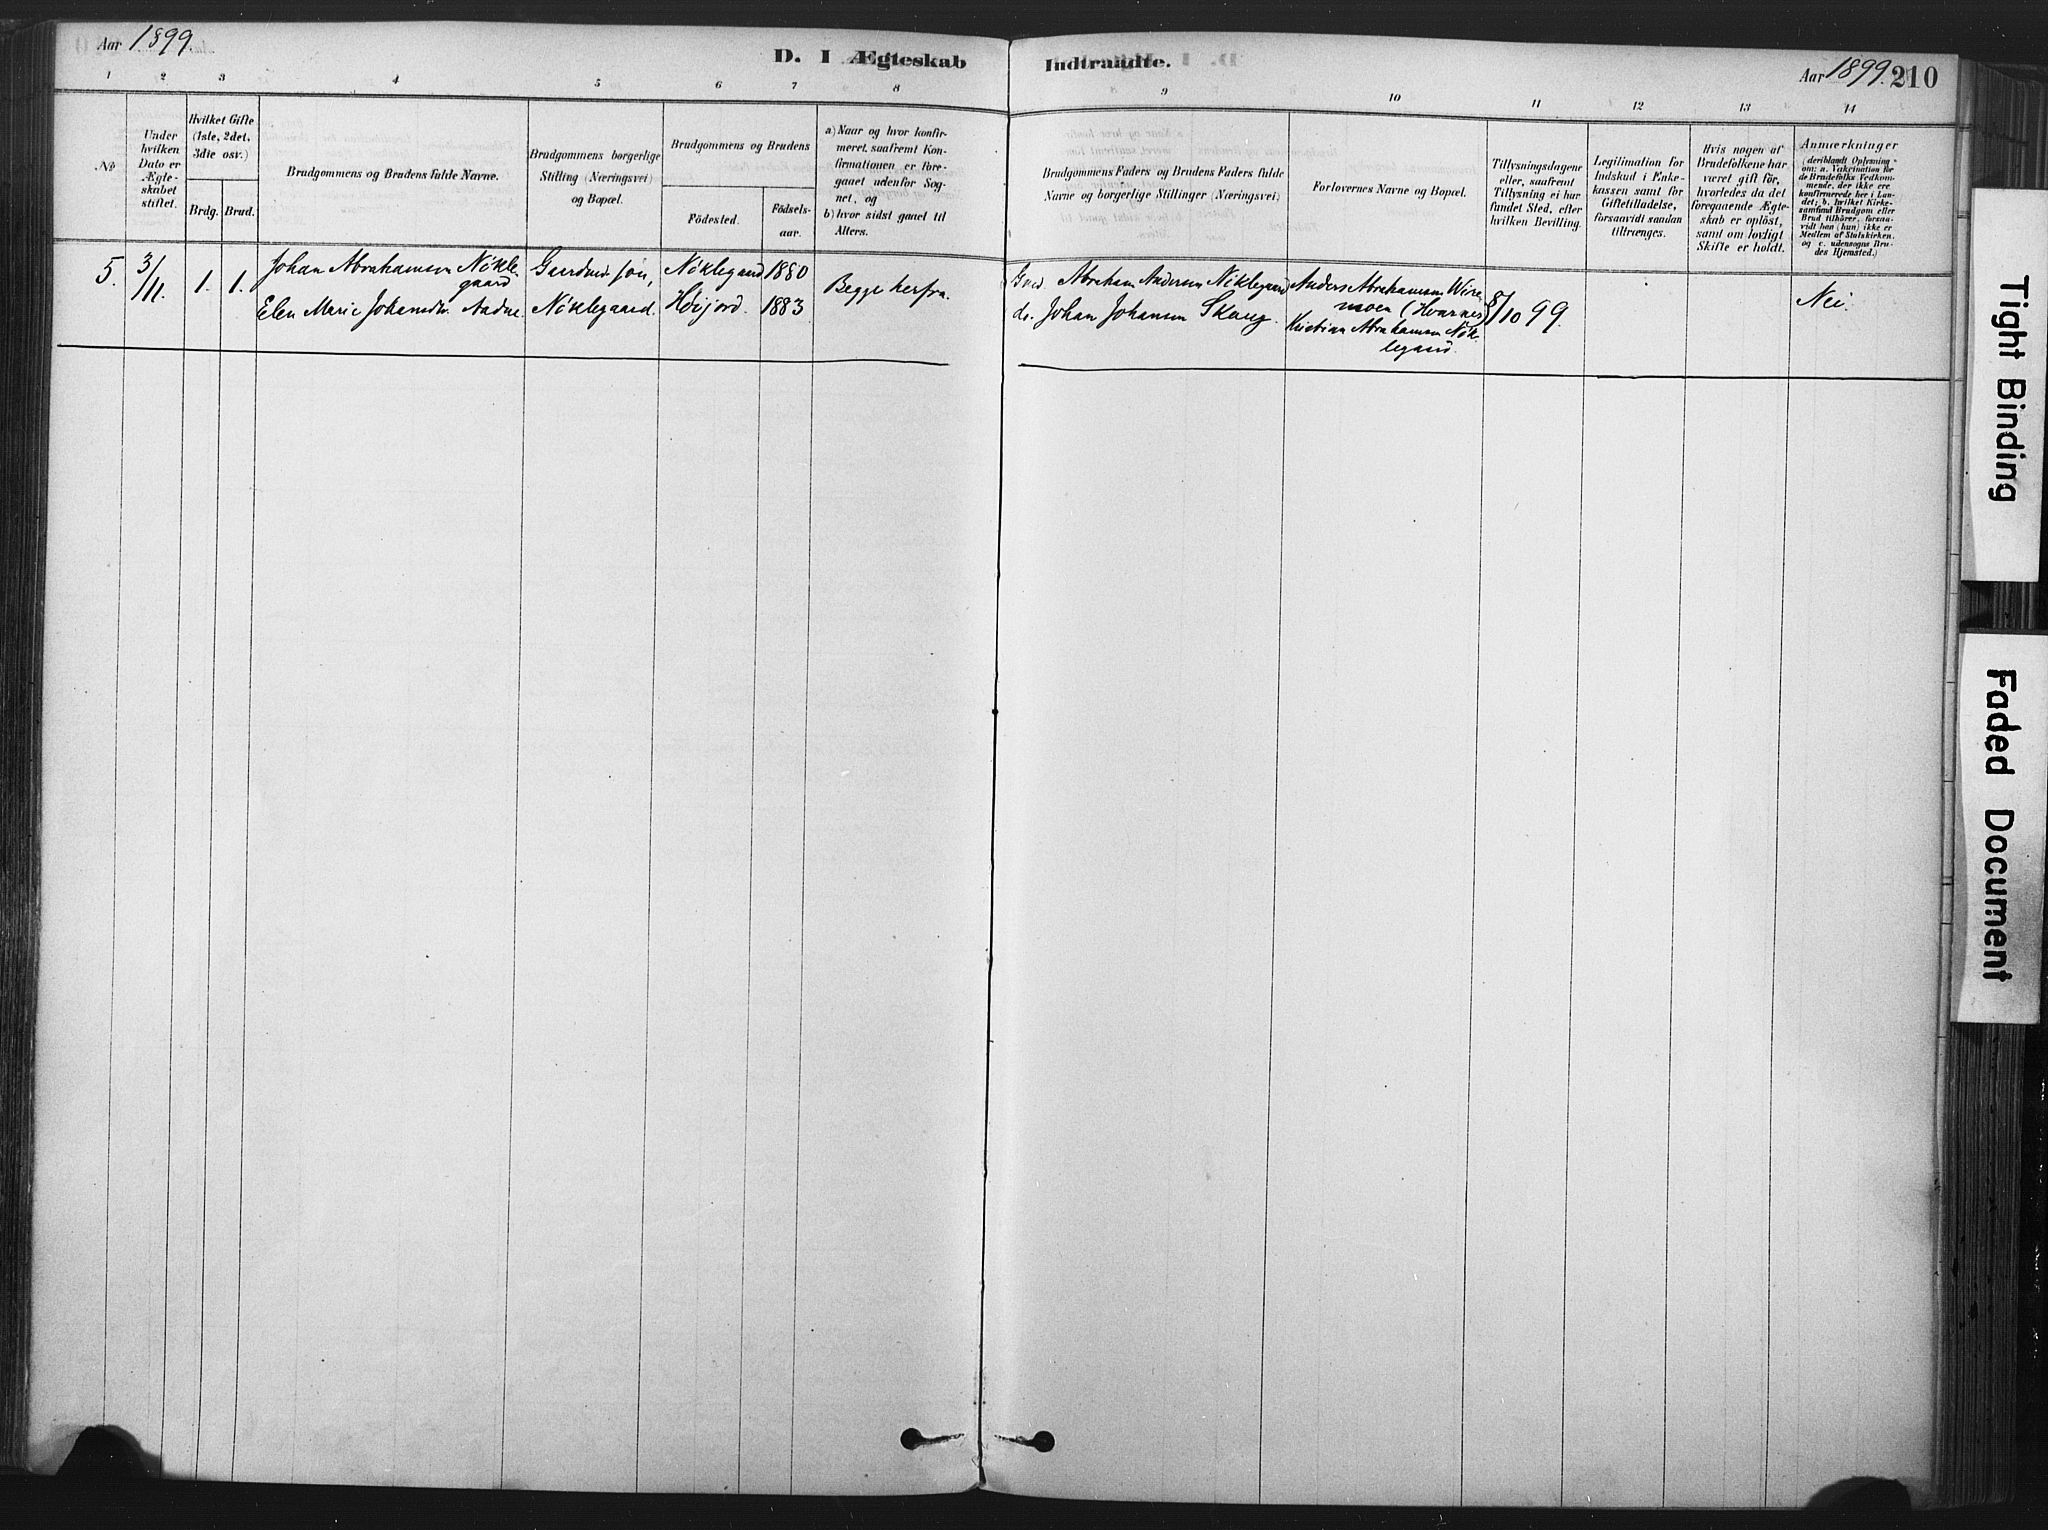 Aar 1899.
D. I Ægteskab Indtraadte.
Aar 1899. 210
1 2 3 4 5 6 7 8 9 10 11 12 13 14
№
Under
hvilken
Dato er
Ægte-
skabet
stiftet.
Hvilket Gifte
(1ste, 2det,
3die osv.)
Brdg. Brud.
Brudgommens og Brudens fulde Navne.
Brudgommens borgerlige
Stilling (Næringsvei)
og Bopæl.
Brudgommens og Brudens
Födested.
Födsels-
aar.
a) Naar og hvor konfir-
meret, saafremt Kon-
firmationen er fore-
gaaet udenfor Sog-
net, og
b) hvor sidst gaaet til
Alters.
Brudgommens Faders og Brudens Faders fulde
Navne og borgerlige Stillinger (Næringsvei)
Forlovernes Navne og Bopæl.
Tillysningsdagene
eller, saafremt
Tillysning ei har
fundet Sted, efter
hvilken Bevilling.
Legitimation for
Indskud i Enke-
kassen samt for
Giftetilladelse,
forsaavidt saadan
tiltrænges.
Hvis nogen af
Brudefolkene har
været gift för,
hvorledes da det
foregaaende Ægte-
skab er oplöst,
samt om lovligt
Skifte er holdt.
Anmærkninger
(deriblandt Oplysning
om: a. Vakcination for
de Brudefolks Vedkom-
mende, der ikke ere
konfirmerede her i Lan-
det; b. hvilket Kirke-
samfund Brudgom eller
Brud tilhörer, forsaa-
vidt han (hun) ikke er
Medlem af Statskirken,
og c. udensogns Bru-
des Hjemsted.)
5. 3/11. 1. 1. Johan Abrahamsen Nökle-
gaard
Elen Marie Johansdtr. Aadne
Gaardmds sön,
Nöklegaard.
Nöklegaard 1880
Höijord. 1883
Begge herfra.
Gmd. Abraham Andersen Nöklegaard
do. Johan Johansen Skaug.
Anders Abrahamsen
moen (Hvarnes)
Kristian Abrahamsen Nök-
legaard.
8/10 99.
Nei.
Tight Binding
Faded Document